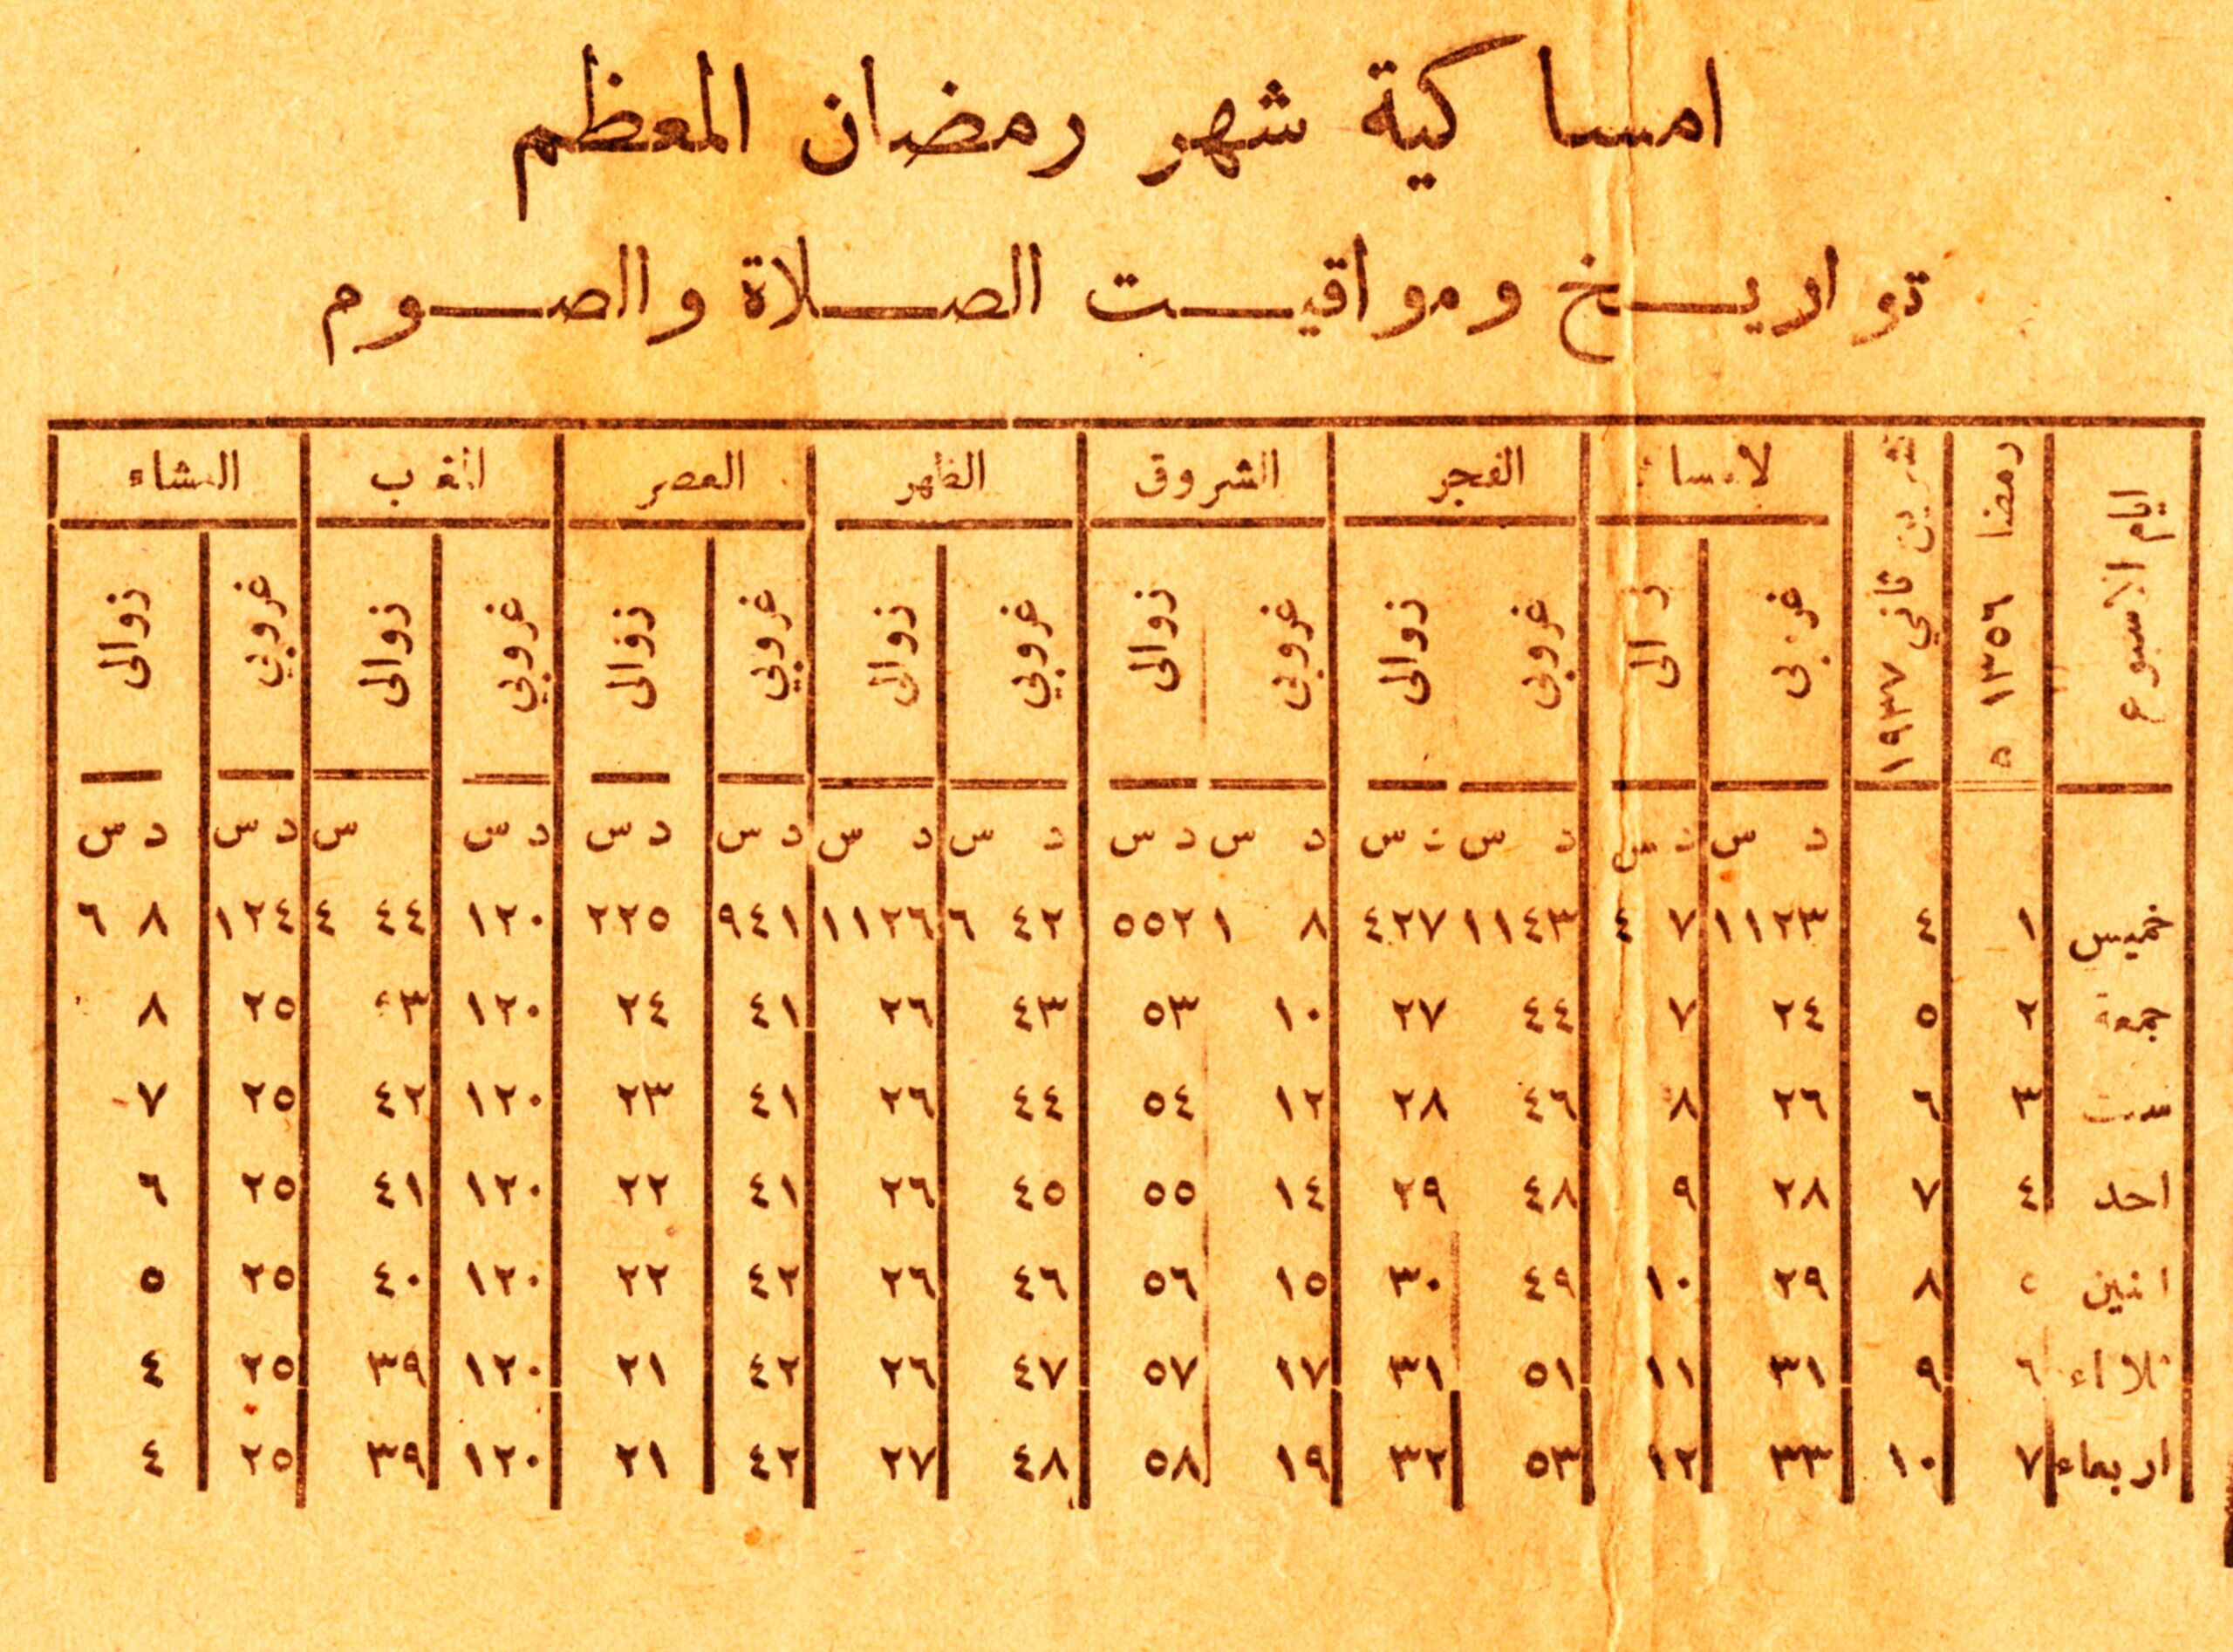 امساكية شهر رمضان المعظم
تواريخ ومواقيت الصلاة والصوم
ايام الاسبوع رمضا ١٣٥٦ ٥ تشرين ثاني ١٩٣٧ الفجر الشروق الظهر العصر العشاء
زوالى غروبى زوالى غروبى زوالى غروبي زوالى غروبي زوالى غروبي زوالى غروبي زوالى
د س د س د س د س د س د س د س د س د س د س د س س د س د س
خميس ١ ٤ ١١٢٣ ٧ ٤ ١١٤٣ ٤٢٧ ٨ ١ ٥٥٢ ٤٢ ٦ ١١٢٦ ٩٤١ ٢٢٥ ١٢٠ ٤٤ ٤ ١٢٤ ٨ ٦
جمعة ٢ ٥ ٢٤ ٧ ٤٤ ٢٧ ١٠ ٥٣ ٤٣ ٢٦ ٤١ ٢٤ ١٢٠ ٢٥ ٨
٣ ٦ ٢٦ ٨ ٤٦ ٢٨ ١٢ ٥٤ ٤٤ ٢٦ ٤١ ٢٣ ١٢٠ ٤٢ ٢٥ ٧
احد ٤ ٧ ٢٨ ٩ ٤٨ ٢٩ ١٤ ٥٥ ٤٥ ٢٦ ٤١ ٢٢ ١٢٠ ٤١ ٢٥ ٦
٨ ٢٩ ١٠ ٤٩ ٣٠ ١٥ ٥٦ ٤٦ ٢٦ ٤٢ ٢٢ ١٢٠ ٤٠ ٢٥ ٥
٦ ٩ ٣١ ١١ ٥١ ٣١ ١٧ ٥٧ ٤٧ ٢٦ ٤٢ ٢١ ١٢٠ ٣٩ ٢٥ ٤
اربعاء ٧ ١٠ ٣٣ ١٢ ٥٣ ٣٢ ١٩ ٥٨ ٤٨ ٢٧ ٤٢ ٢١ ١٢٠ ٣٩ ٢٥ ٤